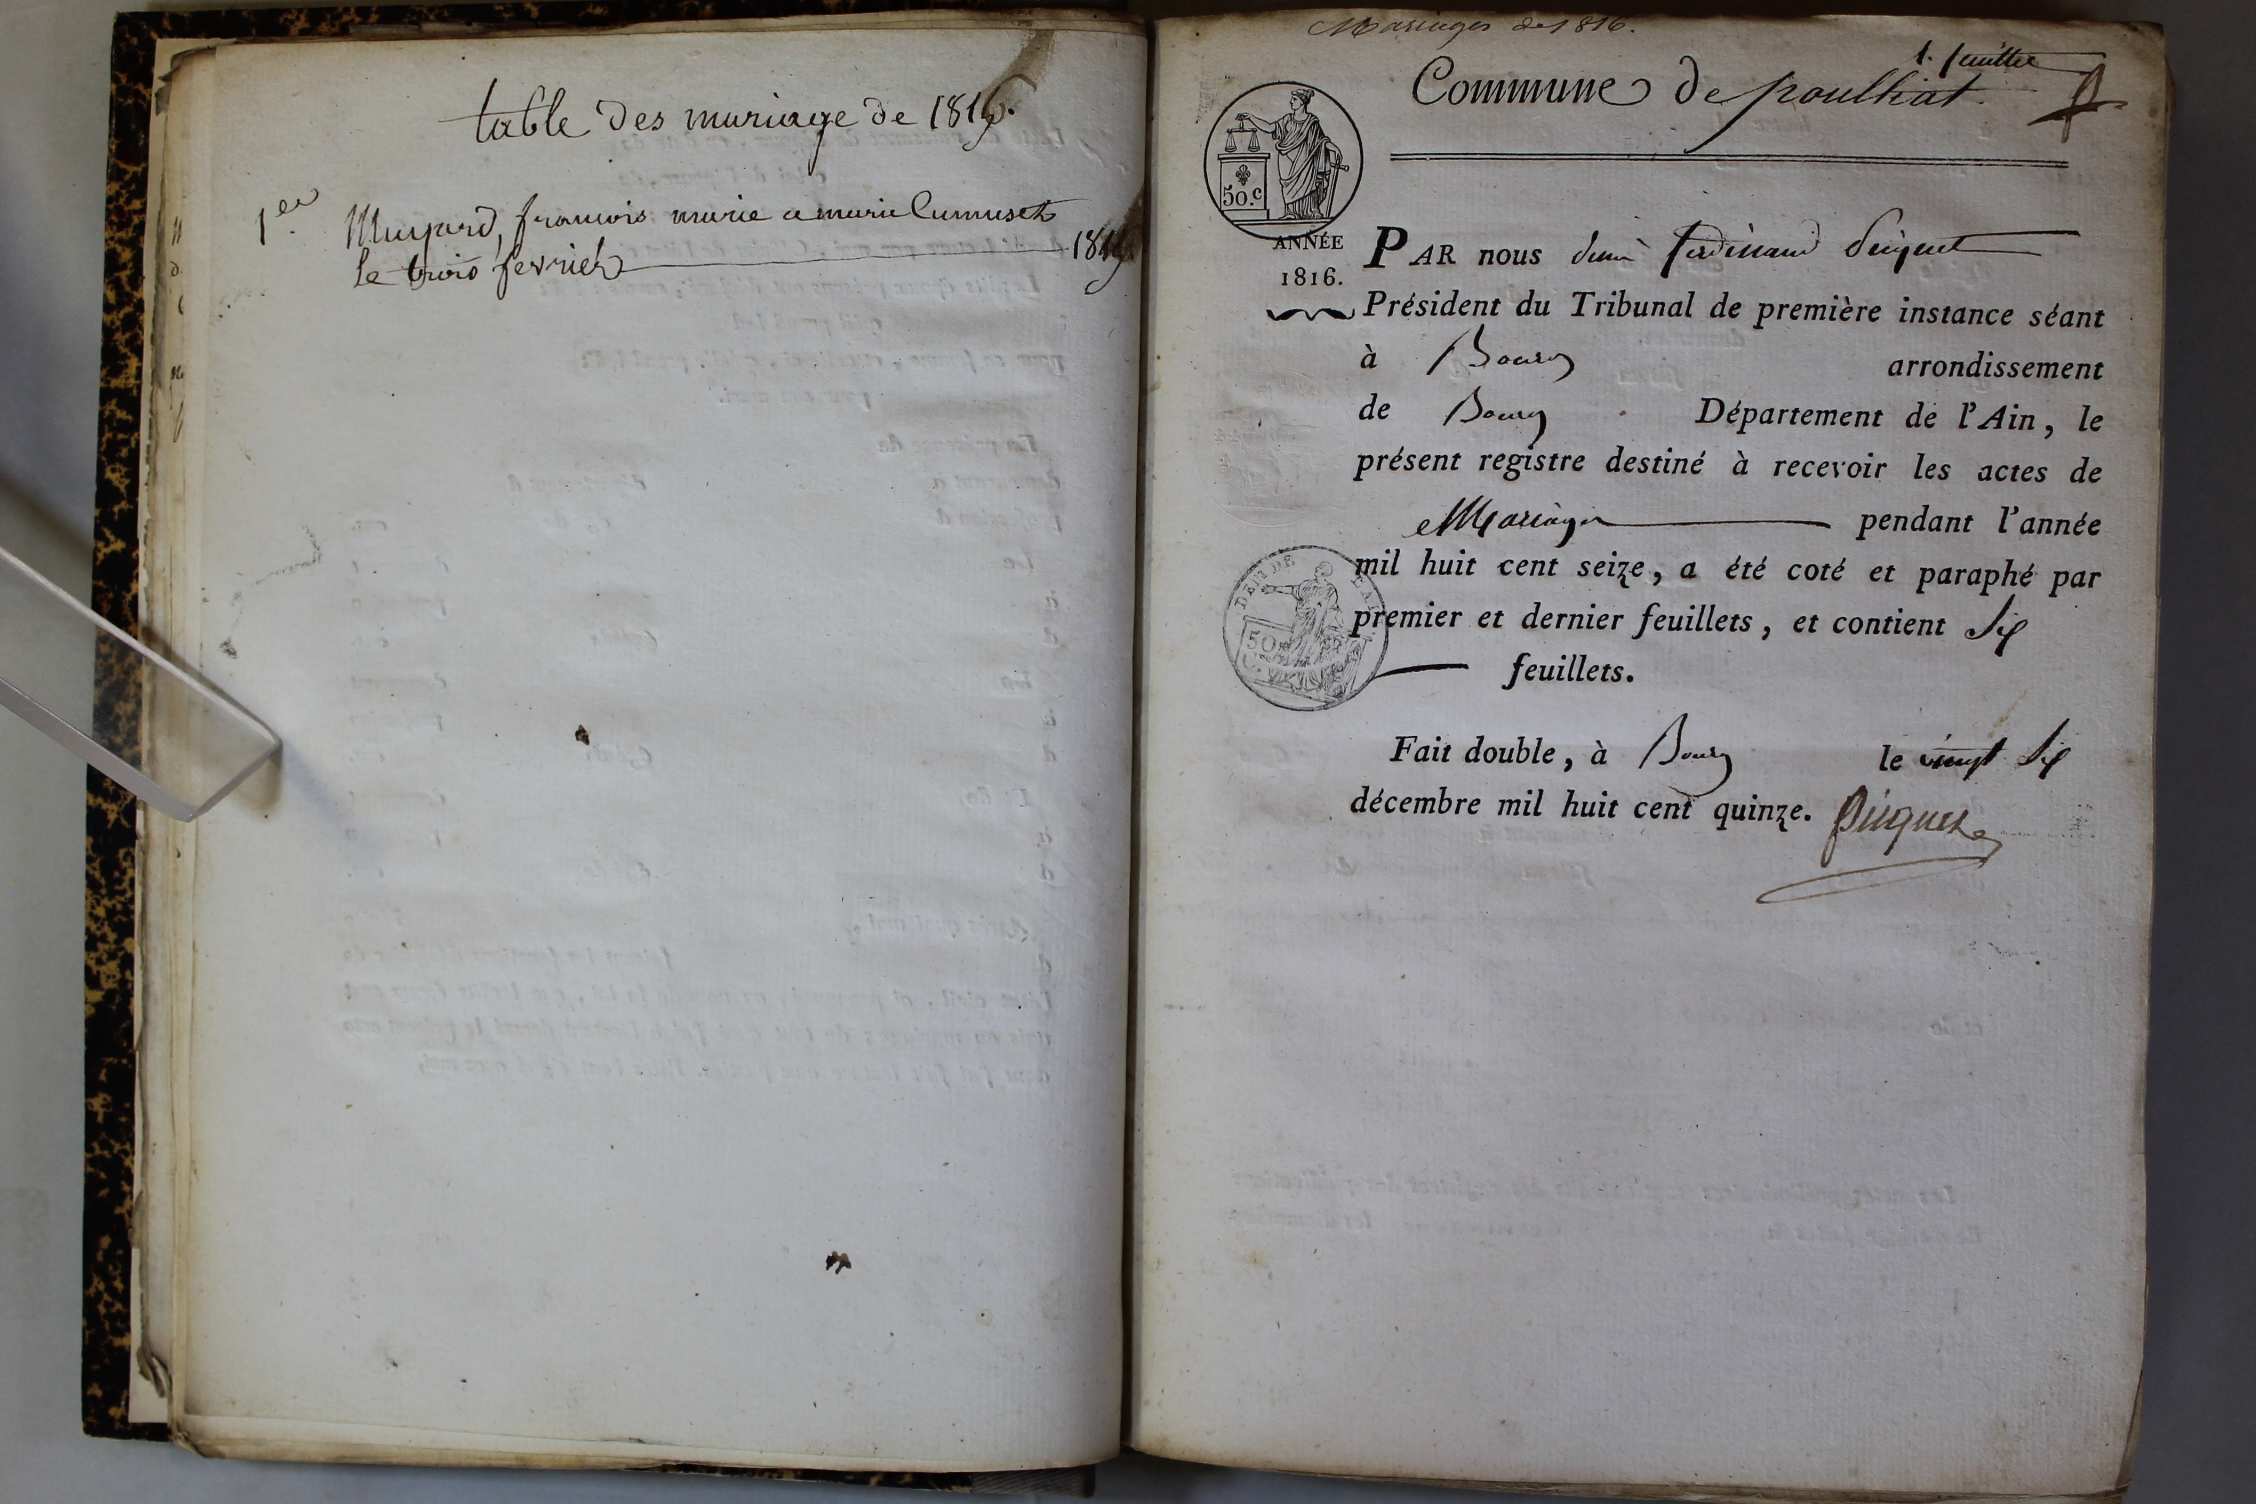 table des mariage de 1815.
1er Muyard, francois marie a marie Cumuset
le trois fevrier 1815
Mariages de 1816.
1. feuillet
Commune de poulliat.
50.c
ANNÉE
1816.
PAR nous ferdinand Picquet
Président du Tribunal de première instance séant
à Bourg arrondissement
de Bourg Département de l'Ain, le
présent registre destiné à recevoir les actes de
Mariages pendant l'année
mil huit cent seize, a été coté et paraphé par
premier et dernier feuillets, et contient Six
feuillets.
50
Fait double, à Bourg le vingt Six
décembre mil huit cent quinze. Picquet